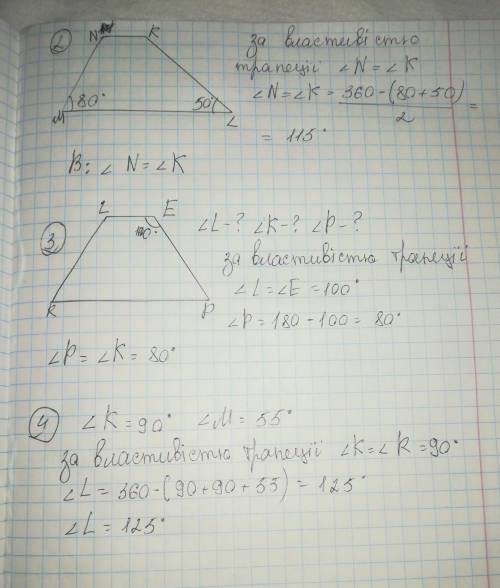 2
N K
M 80° 50° L
за властивістю
трапеції ∠N = ∠K
∠N = ∠K = 360-(80+50) / 2 =
= 115°
В: ∠N = ∠K
3
L E
100°
K P
∠L-? ∠K-? ∠P-?
за властивістю трапеції
∠L = ∠E = 100°
∠P = 180 - 100 = 80°
∠P = ∠K = 80°
4
∠K = 90° ∠M = 55°
за властивістю трапеції ∠K = ∠R = 90°
∠L = 360-(90+90+55) = 125°
∠L = 125°